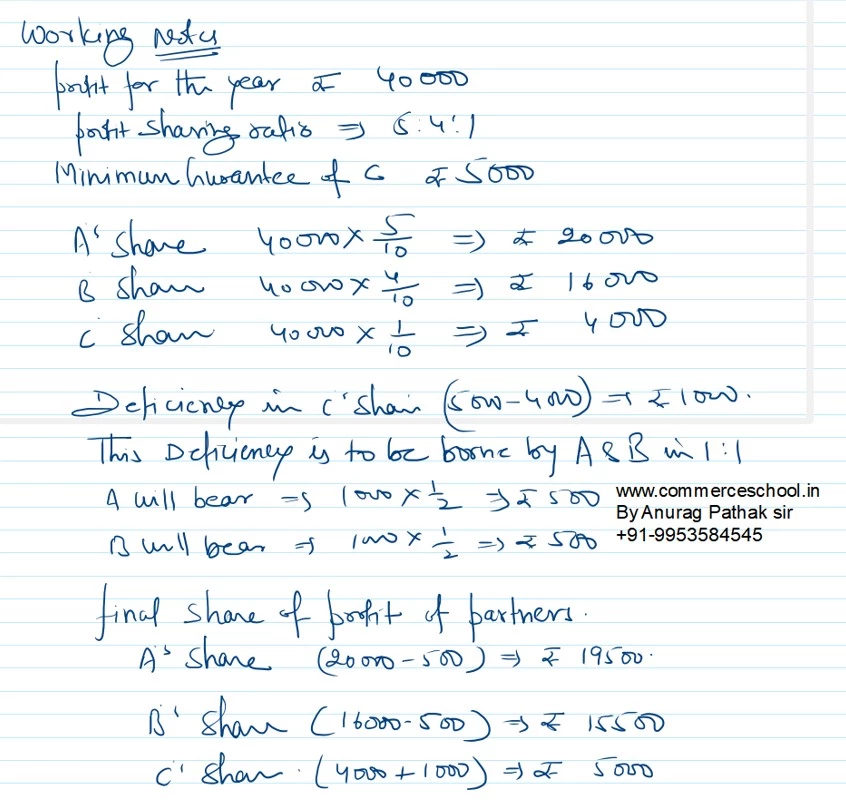 Working Notes
profit for the year ₹ 40000
profit sharing ratio ⇒ 5:4:1
Minimum Gurantee of C ₹ 5000
A's share 40000 × 5/10 ⇒ ₹ 20000
B share 40000 × 4/10 ⇒ ₹ 16000
C share 40000 × 1/10 ⇒ ₹ 4000
Deficiency in C's share (5000-4000) ⇒ ₹ 1000.
This Deficiency is to be borne by A & B in 1:1
A will bear ⇒ 1000 × 1/2 ⇒ ₹ 500
www.commerceschool.in
By Anurag Pathak sir
B will bear ⇒ 1000 × 1/2 ⇒ ₹ 500
+91-9953584545
final share of profit of partners.
A's share (20000-500) ⇒ ₹ 19500.
B' share (16000-500) ⇒ ₹ 15500
C' share. (4000+1000) ⇒ ₹ 5000